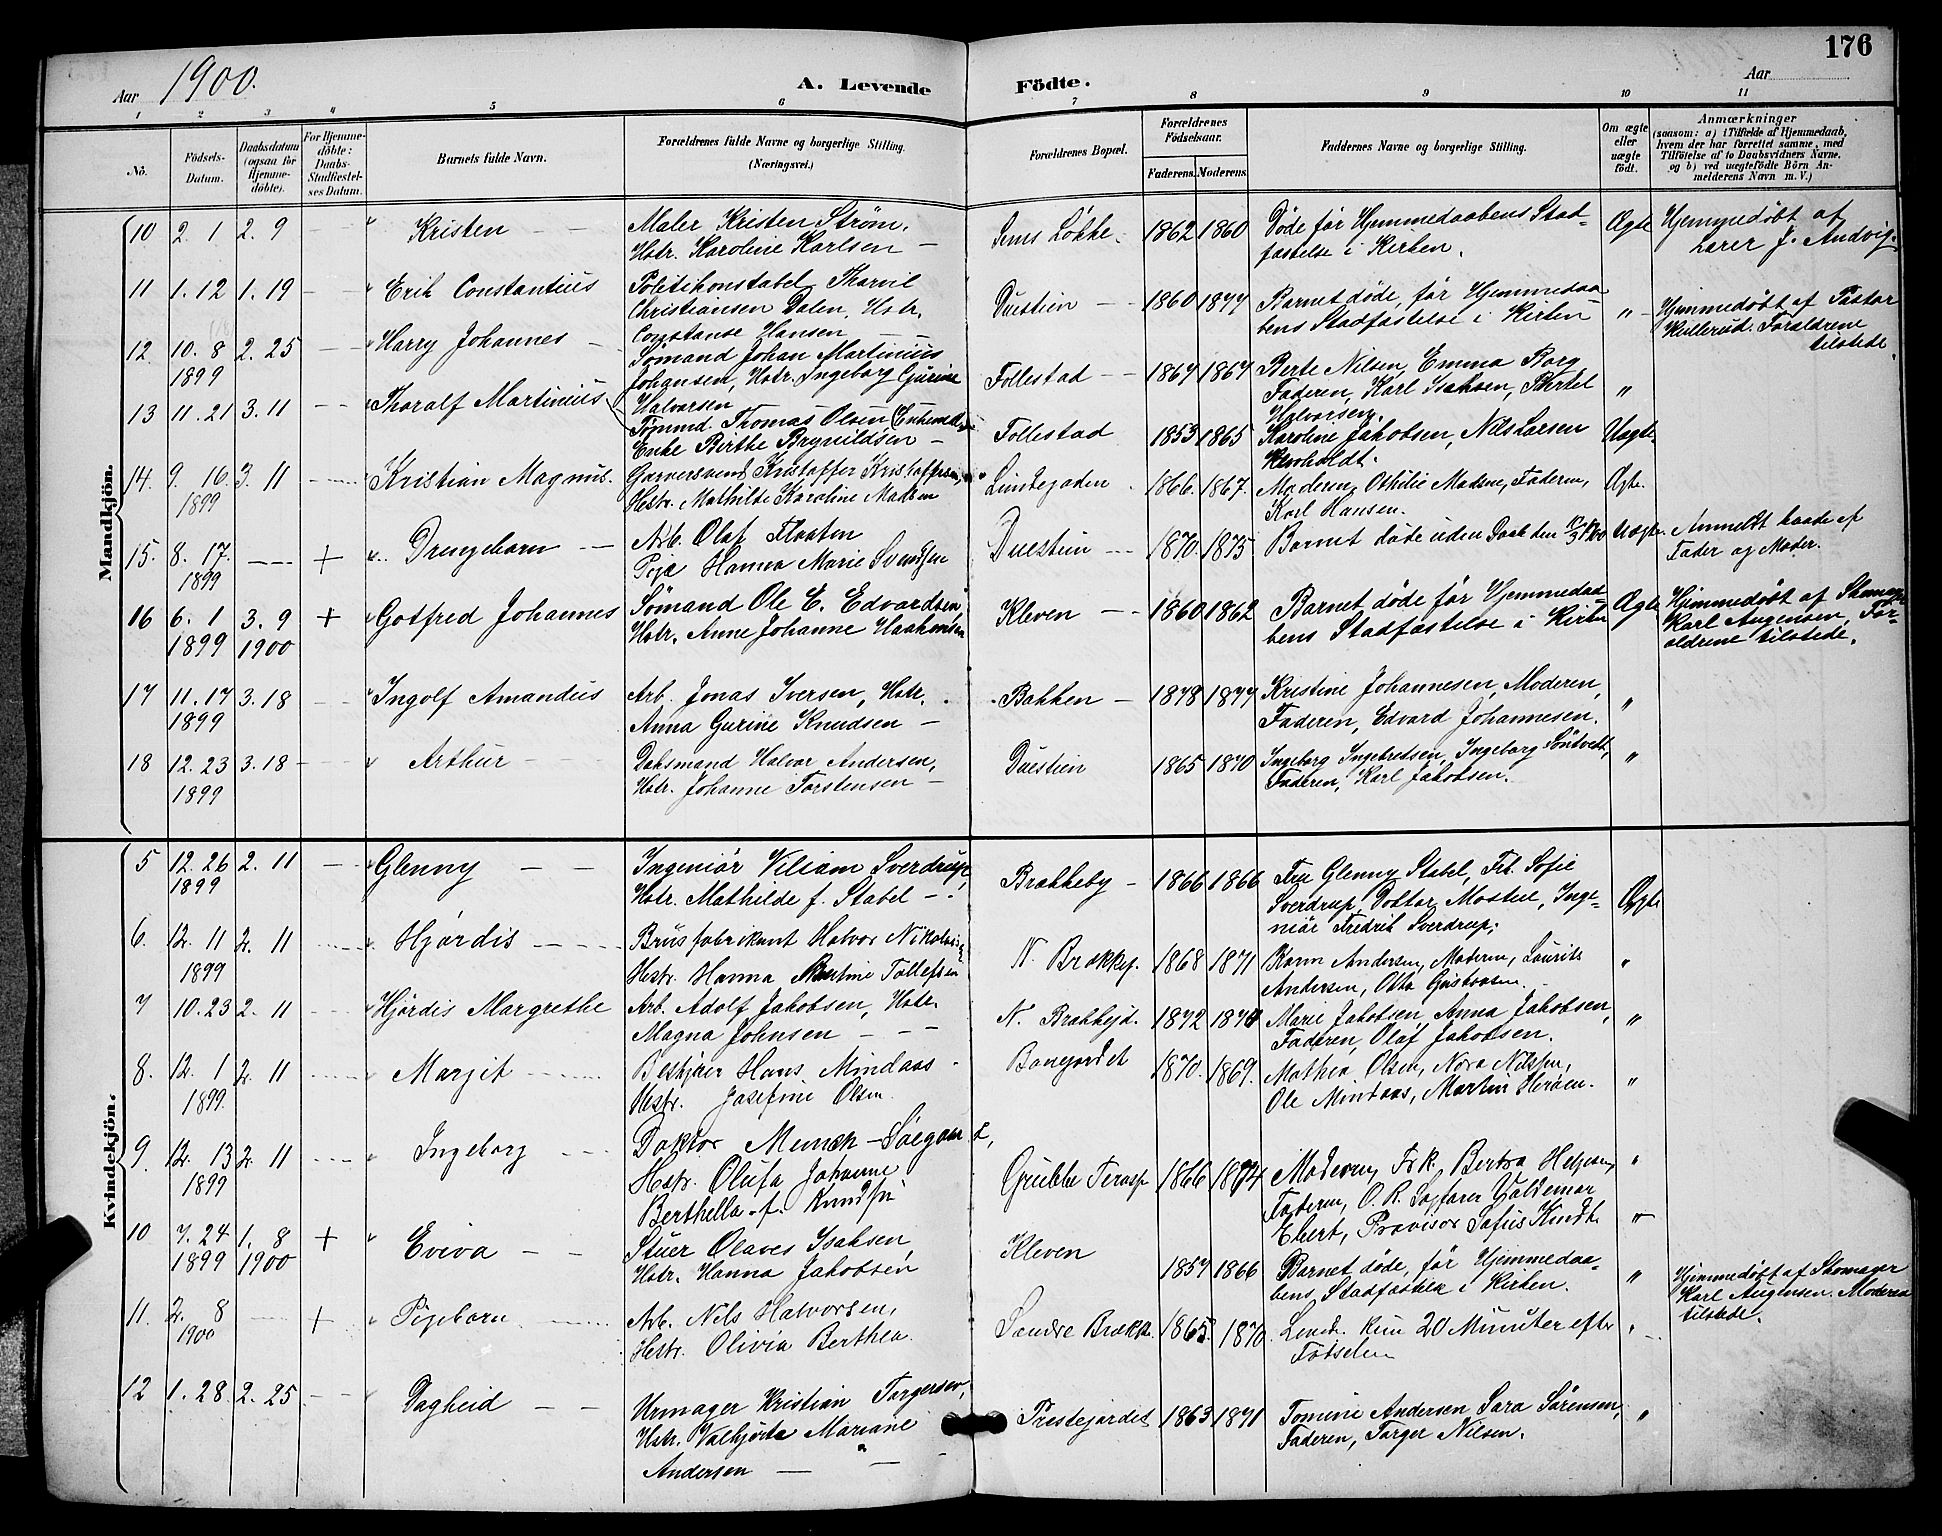 176
Aar 1900.
A. Levende Födte.
Aar
1 2 3 4 5 6 7 8 9 10 11
No.
Födsels-Datum.
Daabsdatum (ogsaa for Hjemmedöbte).
For Hjemmedöbte: Daabs-Stadfæstelses Datum.
Barnets fulde Navn.
Forældrenes fulde Navne og borgerlige Stilling. (Næringsvei.)
Forældrenes Bopæl.
Forældrenes Födselsaar.
Faderens. Moderens.
Faddernes Navne og borgerlige Stilling.
Om ægte eller uægte födt.
Anmærkninger
(saasom: a) i Tilfælde af Hjemmedaab, hvem der har forrettet samme, med Tilföielse af to Daabsvidners Navne. og b) ved uægtefödte Börn Anmelderens Navn m. V.)
Mandkjön.
10 2. 1 2. 9 " Kristen Maler Kristen Strøm, Løkke. 1862 1860 Døde før Hjemmedaabens Stad- Ægte Hjemmedøbt af
Hstr. Karoline Karlsen fæstelse i Kirken. Lærer J. Andvig.
11 1. 12 1. 19 " Erik Constantius Politikonstabel Tharil Duestien 1860 1877 Barnet døde, før Hjemmedaa- " Hjemmedøbt af Pastor
Christiansen Dalen, Hstr. bens Stadfæstelse i Kirken Killerud. Forældrene
Constanse Hansen tilstede.
12. 10. 8 2. 25 " Harry Johannes Sømand Johan Martinius Follestad 1867 1867 Berte Nilsen, Emma Borg, "
1899 Johansen, Hstr. Ingeborg Gurine Faderen, Karl Isaksen, Bertel
Halvorsen Halvorsen.
13 11. 21 3. 11 " Thoralf Martinius Tømmd Thomas Olsen (Enkemd) Follestad 1853 1865 Karoline Jakobsen, Nils Larsen Uægte
Enke Birthe Brynildsen
14. 9. 16. 3. 11 " Kristian Magnus. Garversvend Kristoffer Kristoffersen, 1866. 1867. Moderen, Othilie Madsen, Faderen, Ægte.
1899 Hstr. Mathilde Karoline Madsen Karl Hansen.
15. 8. 17. + " Drengebarn Arb. Olaf Floaten Duestien 1870. 1875. Barnet døde uden Daab den Uægte. Anmeldt baade af
1899 Pige Hanna Marie Svendsen Fader og Moder.
16 6. 1 3. 9 + " Gotfred Johannes Sømand Ole E. Edvardsen, Kleven 1860 1862 Barnet døde før Hjemmedaa- Ægte Hjemmedøbt af
1899 1900 Hstr. Anne Johanne Haakonsen bens Stadfæstelse i Kirken Karl Augensen, For-
ældrene tilstede.
17 11. 17 3. 18 " Ingolf Amandus Arb. Jonas Iversen, Hstr. Bakken 1878 1877 Kristine Johannesen, Moderen, "
1899 Anna Gurine Knudsen Faderen, Edvard Johannesen.
18 12. 23 3. 18 " Arthur Halvor Andersen, Duestien 1865 1870 Ingeborg Ingebretsen, Ingeborg Søntvedt, "
1899 Hstr. Johanne Torstensen Faderen, Karl Jakobsen.
Kvindekjön.
5 12. 26 2. 11 " Glenny Ingeniør Viliam Sverdrup, Brækkeby 1866 1866 Fru Glenny Stabel, Frk. Sofie Ægte
1899 Hstr. Mathilde f. Stabel Sverdrup, Doktor Inge-
niør Fredrik Sverdrup,
6. 12. 11 2. 11 " Hjørdis Brusfabrikant Halvor Nikolaisen N. 1868 1871 Karen Andersen, Moderen, Laurits "
1899 Hstr. Hanna Tollefsen Andersen, Otto Gustavsen.
7 10. 23 2. 11 " Hjørdis Margrethe Arb. Adolf Jakobsen, Hstr. N. 1872 Marie Jakobsen Anna Jakobsen, "
Magna Johnsen Faderen, Olaf Jakobsen.
8. 12. 1 2. 11 " Margit Hans Mindaas 1870. 1869. Mathea Olsen, Nora Nilsen, "
1899. Hstr. Josefine Olsen Ole Mindaas, Martin
9. 12. 13 2. 11 " Ingeborg Doktor Munch-Søegaard, 1866 1874 Moderen, Frk. Bertra "
1899 Hstr. Olufa Johanne Faderen, O. R. Sagfører Valdemar
Berthella f. Knudsen Ebert, Provisor Sofus Kindt
10 7. 24 1. 8 + " Eviva Stuer Olaves Isaksen, Kleven 1857 1866 Barnet døde, før Hjemmedaa- " Hjemmedøbt af Skomager
1899 1900 Hstr. Hanna Jakobsen bens Stadfæstelse i Kirken. Karl Augensen. Moderen
tilstede.
11. 2. 8 + " Pigebarn Arb. Nils Halvorsen, Søndre 1865. 1870. Levede kun 20 Minuter efter "
1900 Hstr. Olivia Berthea. Fødselen
12 1. 28 2. 25 " Dagheid Urmager Kristian Torgersen, Prestejordet 1863 1871 Tomine Andersen Sara Sørensen, "
Hstr. Mariane Faderen, Torger Nilsen.
Andersen